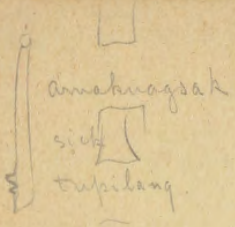 amaknagsak
sick
tupilang.